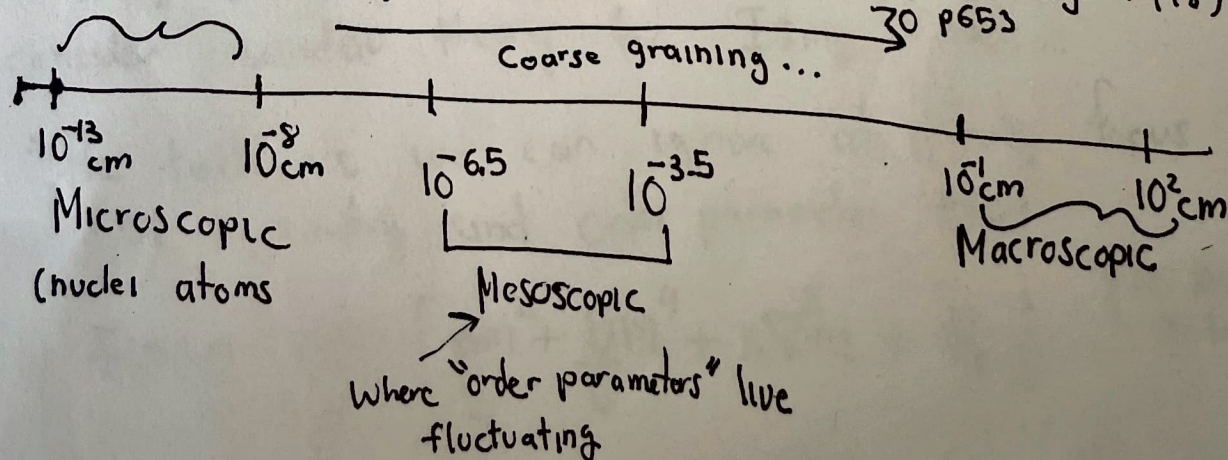 30 P653
Coarse graining ...
10^-13 cm 10^-8 cm 10^-6.5 10^-3.5 10^-1 cm 10^2 cm
Microscopic
(nuclei atoms
Mesoscopic
Macroscopic
Where "order parameters" live
fluctuating